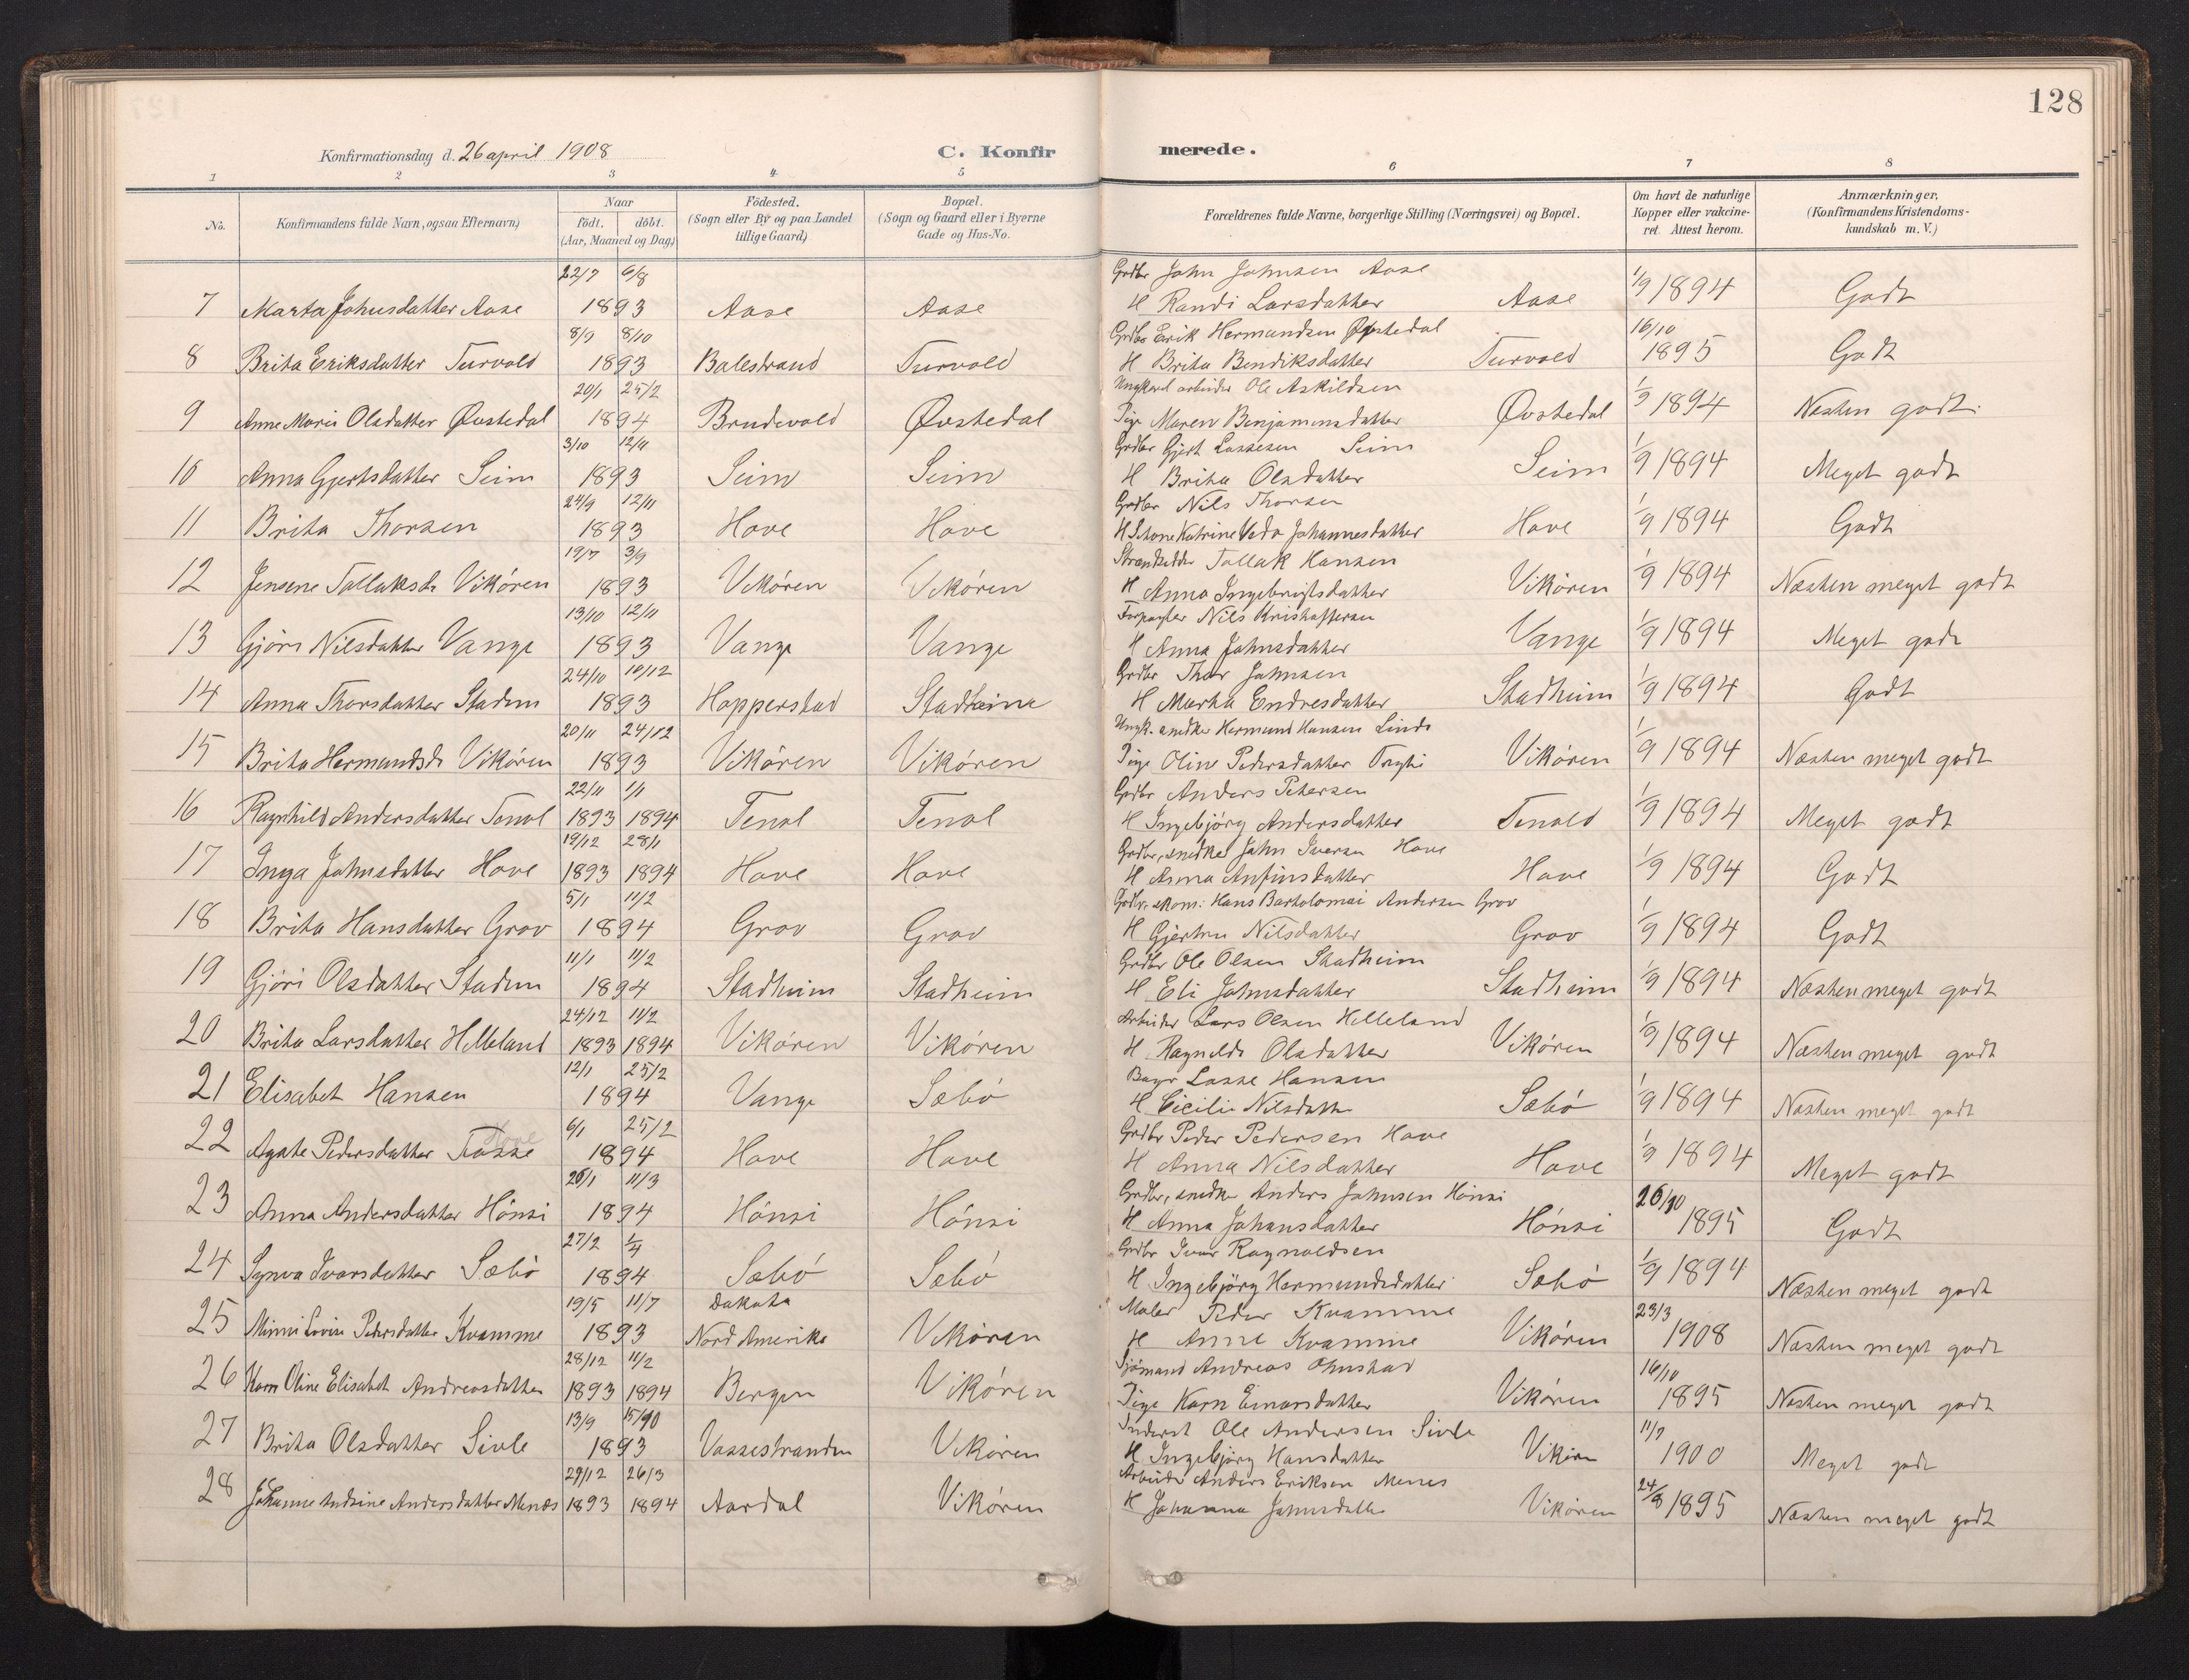 128
Konfirmationsdag d. 26 april 1908
C. Konfirmerede.
1 2 3 4 5 6 7 8
No.
Konfirmandens fulde Navn, ogsaa Efternavn)
Naar
födt. döbt.
(Aar, Maaned og Dag)
Födested.
(Sogn eller By og paa Landet
tillige Gaard)
Bopæl.
(Sogn og Gaard eller i Byerne
Gade og Hus-No.
Forældrenes fulde Navne, borgerlige Stilling (Næringsvei) og Bopæl.
Om havt de naturlige
Kopper eller vakcine-
ret. Attest herom.
Anmærkninger.
(Konfirmandens Kristendoms-
kundskab m. V.)
22/7 6/8 Grdbr John Johnsen Aase
7 Marta Johnsdatter Aase 1893 Aase Aase H Randi Larsdatter Aase 1/9 1894 Godt
8/9 8/10 Grdbr Erik Hermundsen Øvstedal 16/10
8 Brita Eriksdatter Turvold 1893 Balestrand Turvold H Brita Bendiksdatter Turvold 1895 Godt
20/1 25/2 Ungkarl arbeider Ole Askildsen
9 Anne Marie Olsdatter Øvstedal 1894 Brudevold Øvstedal Pige Maren Benjaminsdatter Øvstedal 1/9 1894 Næsten godt.
3/10 12/11 Grdbr Gjert Lassesen Seim
10 Anna Gjertsdatter Seim 1893 Seim Seim H Brita Olsdatter Seim 1/9 1894 Meget godt
24/9 12/11 Grdbr Nils Thorsen
11 Brita Thorsen 1893 Hove Hove H Katrine Johannesdatter Hove 1/9 1894 Godt
19/7 3/9 Strandsidder Tollak Hansen
12 Jensene Tollaksdr Vikören 1893 Vikören Vikören H Anna Ingebrigtsdatter Vikören 1/9 1894 Næsten meget godt
13/10 12/11 Forpagter Nils Kristoffersen
13 Gjöri Nilsdatter Vange 1893 Vange Vange H Anna Johnsdatter Vange 1/9 1894 Meget godt
24/10 10/12 Grdbr Thor Johnsen
14 Anna Thorsdatter Stadem 1893 Hopperstad Stadheim H Marta Endresdatter Stadheim 1/9 1894 Godt
20/11 24/12 Ungk. snedker Hermund Hansen Linde
15 Brita Hermundsdr Vikören 1893 Vikören Vikören Pige Oline Pedersdatter Vikören 1/9 1894 Næsten meget godt
22/11 1/1 Grdbr Anders Petersen
16 Ragnhild Andersdatter Tenol 1893 1894 Tenol Tenol H Ingebjörg Andersdatter Tenold 1/9 1894 Meget godt
19/12 28/1 Grdbr, snedker John Iversen Hove
17 Inga Johnsdatter Hove 1893 1894 Hove Hove H Anna Anfinsdatter Hove 1/9 1894 Godt
5/1 11/2 Grdbr. skom: Hans Bartolomai Andersen Grov
18 Brita Hansdatter Grov 1894 Grov Grov H Gjertru Nilsdatter Grov 1/9 1894 Godt
11/1 11/2 Grdbr Ole Olsen Stadheim
19 Gjöri Olsdatter Stadem 1894 Stadheim Stadheim H Eli Johnsdatter Stadheim 1/9 1894 Næsten meget godt
24/12 11/2 Arbeider Lars Olsen Helleland
20 Brita Larsdatter Helleland 1893 1894 Vikören Vikören H Ragnilda Olsdatter Vikören 1/9 1894 Næsten meget godt
12/1 25/2 Lasse Hansen
21 Elisabet Hansen 1894 Vange Sæbö H Cicilie Nilsdatter Sæbö 1/9 1894 Næsten meget godt
6/1 25/2 Grdbr Peder Pedersen Hove
22 Agate Pedersdatter 1894 Hove Hove H Anna Nilsdatter Hove 1/9 1894 Meget godt
26/1 11/3 Grdbr, snedker Anders Johnsen Hönsi 26/10
23 Anna Andersdatter Hönsi 1894 Hönsi Hönsi H Anna Johansdatter Hönsi 1895 Godt
27/2 1/4 Grdbr Ivar Ragnvaldsen
24 Synva Ivarsdatter Sæbö 1894 Sæbö Sæbö H Ingebjörg Hermundsdatter Sæbö 1/9 1894 Næsten meget godt
19/5 11/7 Dakota Maler Peder Kvamme 23/3
25 Minni Lovise Pedersdatter Kvamme 1893 Nord Amerika Vikören H Anne Kvamme Vikören 1908 Næsten meget godt
28/12 11/2 Sjömand Andreas Ohnstad 16/10
26 Karn Oline Elisabet Andreasdatter 1893 1894 Bergen Vikören Pige Karn Einarsdatter Vikören 1895 Næsten meget godt
13/9 15/10 Inderst Ole Andersen Sivle 11/7
27 Brita Olsdatter Sivle 1893 Vossestranden Vikören H Ingebjörg Hansdatter Vikören 1900 Meget godt
29/12 26/3 Arbeider Anders Eriksen Menes
28 Johanne Andrine Andersdatter Menæs 1893 1894 Aardal Vikören H Johanna Johnsdatter Vikören 24/8 1895 Næsten meget godt